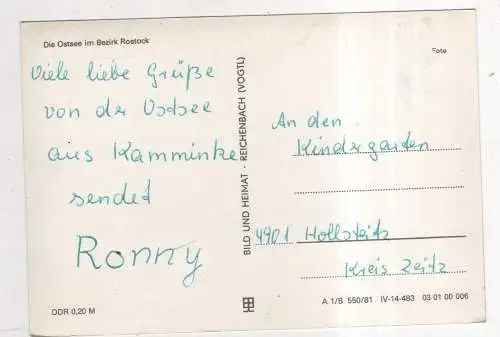 Die Ostsee im Bezirk Rostock
Viele liebe Grüße
von der Ostsee
aus Kamminke
sendet
Ronny
DDR 0,20 M
BILD UND HEIMAT · REICHENBACH (VOGTL)
Foto
An den
Kindergarten
4901 Hollsteitz
Kreis Zeitz
A 1/B 550/81 IV-14-483 03 01 00 006